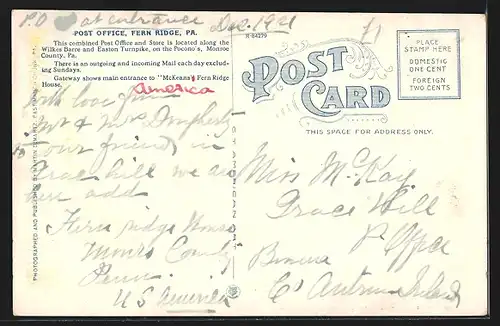 P.O at entrance Dec 1921
POST OFFICE, FERN RIDGE, PA. R-84279
This combined Post Office and Store is located along the
Wilkes Barre and Easton Turnpike, on the Pocono's, Monroe
County, Pa.
There is an outgoing and incoming Mail each day exclud-
ing Sundays.
Gateway shows main entrance to "McKeans' Fern Ridge
House.
America
With love from
Mr & Mrs
to your friends in
Grace hill we are
here add
Fern ridge House
Monroe County
Penn
U S America
PHOTOGRAPHED AND PUBLISHED BY MARTIN SCHWARTZ, EASTMAN
POST CARD
THIS SPACE FOR ADDRESS ONLY.
PLACE
STAMP HERE
DOMESTIC
ONE CENT
FOREIGN
TWO CENTS
£1
Miss McKay
Grace Hill
P Office
Co Antrim Ireland